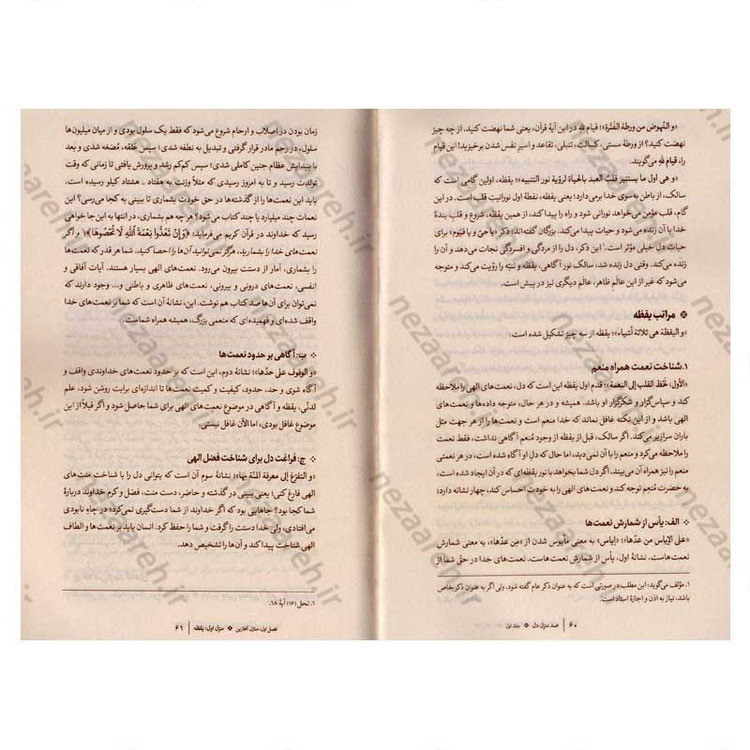 «و النُّهوض من ورطة الفَترة»؛ قیام لله در این آیۀ قرآن، یعنی شما نهضت کنید. از چه چیز
نهضت کنید؟ از ورطۀ سستی، کسالت، تنبلی، تقاعد و اسیر نفس شدن برخیزید! این قیام
را، قیام لله می‌گویند.
«و هی اول ما یستنیر قلب العبد بالحیاة لرؤیة نور التنبیه»؛ یقظه، اولین گامی است که
سالک، از باطن به سوی خدا برمی‌دارد؛ یعنی یقظه، نقطۀ اول نورانیت قلب است. در این
گام، قلب مؤمن می‌خواهد نورانی شود و راه را پیدا کند، از همین یقظه، شروع و قلب بندۀ
خدا با آن زنده می‌شود و حیات پیدا می‌کند. بزرگان گفته‌اند: ذکر «یا حیّ و یا قیّوم» برای
حیات دل خیلی مؤثر است.۱ این ذکر، دل را از مردگی و افسردگی نجات می‌دهد و آن را
زنده می‌کند. وقتی دل زنده شد، سالک نور آگاهی، یقظه و تنبّه را رؤیت می‌کند و متوجه
می‌شود که غیر از این عالَم ظاهر، عالَم دیگری نیز در پیش است.
❖ مراتب یقظه
«و الیقظة هی ثلاثة أشیاء»؛ یقظه از سه چیز تشکیل شده است:
۱. شناخت نعمت همراه منعم
«الأول: لَحظ القلب إلی النعمة»؛ قدم اول یقظه این است که دل، نعمت‌های الهی را ملاحظه
کند و سپاس‌گزار و شکرگزار او باشد. همیشه و در هر حال، متوجه داده‌ها و نعمت‌های
الهی باشد و از این نکته غافل نماند که خدا منعم است و نعمت‌ها را از هر جهت مثل
باران سرازیر می‌کند. اگر سالک، قبل از یقظه از وجود مُنعم آگاهی نداشت، فقط نعمت
را ملاحظه می‌کرد و منعم را با آن نمی‌دید، اما حال که دل او آگاه شده است، در هر نعمتی
منعم را نیز همراه آن می‌بیند. اگر دل شما بخواهد با نور یقظه‌ای که در آن ایجاد شده است،
به حضرت مُنعِم توجه کند و نعمت‌های الهی را به خودت احساس کند، چهار نشانه دارد:
❖ الف: یأس از شمارش نعمت‌ها
«علی الإیاس من عدّها»؛ «إیاس» به معنی مأیوس شدن از «مِن عدّها»، به معنی شمارش
نعمت‌هاست. نشانۀ اول، یأس از شمارش نعمت‌هاست. نعمت‌های خدا در حق شما از
۱. مؤلف می‌گوید: این مطلب در صورتی است که به عنوان ذکر عام گفته شود. ولی اگر به عنوان ذکر خاص
باشد، نیاز به اذن و اجازۀ استاد است.
۶۰ | صد منزل دل ❖ جلد اول
زمان بودن در اصلاب و ارحام شروع می‌شود که فقط یک سلول بودی و از میان میلیون‌ها
سلول، در رحم مادر قرار گرفتی و تبدیل به نطفه شدی؛ سپس علقه، مُضغه شدی و بعد
با پیدایش عظام جنین کاملی شدی؛ سپس کم‌کم رشد و پرورش یافتی تا زمانی که وقت
تولدت رسید و تا به امروز رسیدی که مثلاً وزنت به هفتاد ـ هشتاد کیلو رسیده است.
باید این نعمت‌ها را از گذشته‌ها در حق خودت بشماری تا ببینی به کجا می‌رسی؟ این
نعمات چند میلیارد یا چند کتاب می‌شود؟ هر چه هم بشماری، در انتها به این جا خواهی
رسید که خداوند در قرآن کریم می‌فرماید: ﴿وَإِن تَعُدُّوا نِعمَةَ اللَّهِ لَا تُحصُوهَا﴾؛۱ و اگر
نعمت‌های خدا را بشمارید، هرگز نمی‌توانید آن‌ها را احصا کنید. شما هر قدر که نعمت‌ها
را بشماری، آمار از دستت بیرون می‌رود. نعمت‌های الهی بسیار هستند. آیات آفاقی و
انفسی، نعمت‌های درونی و بیرونی، نعمت‌های ظاهری و باطنی و... وجود دارند که
نمی‌توان برای آن‌ها صد کتاب هم نوشت. این، نشانۀ آن است که شما بر نعمت‌های خدا
واقف شده‌ای و فهمیده‌ای که منعمی بزرگ، همیشه همراه شماست.
❖ ب: آگاهی بر حدود نعمت‌ها
«و الوقوف علی حدّها»؛ نشانۀ دوم، این است که بر حدود نعمت‌های خداوندی واقف و
آگاه شوی و حد، حدود، کیفیت و کمیت نعمت‌ها تا اندازه‌ای برایت روشن شود، علم
لدنّی، یقظه و آگاهی در موضوع نعمت‌های الهی برای شما حاصل شود و اگر قبلاً از این
موضوع غافل بودی، اما الآن غافل نیستی.
❖ ج: فراغت دل برای شناخت فضل الهی
«و التفرّغ إلی معرفة المنّة بها» نشانۀ سوم آن است که بتوانی دل را با شناخت منت‌های
الهی فارغ کنی؛ یعنی ببینی در گذشته و حاضر، دست منت، فضل و کرم خداوند دربارۀ
شما کجا بود؟ جاهایی بود که اگر خداوند از شما دست‌گیری نمی‌کرد؛ در چاه نابودی
می‌افتادی، ولی خدا دستت را گرفت و شما را حفظ کرد. انسان باید بر نعمت‌ها و الطاف
الهی شناخت پیدا کند و آن‌ها را تشخیص دهد.
۱. نحل (۱۶) آیۀ ۱۸.
فصل اول: منازل آغازین ❖ منزل اول: یقظه | ۶۱
nezaareh.ir